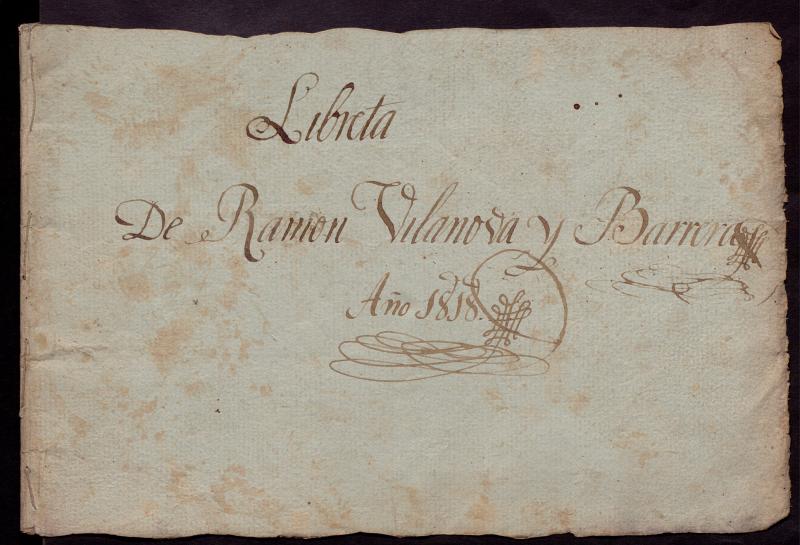 Libreta
De Ramon Vilanova y Barrera
Año 1818.